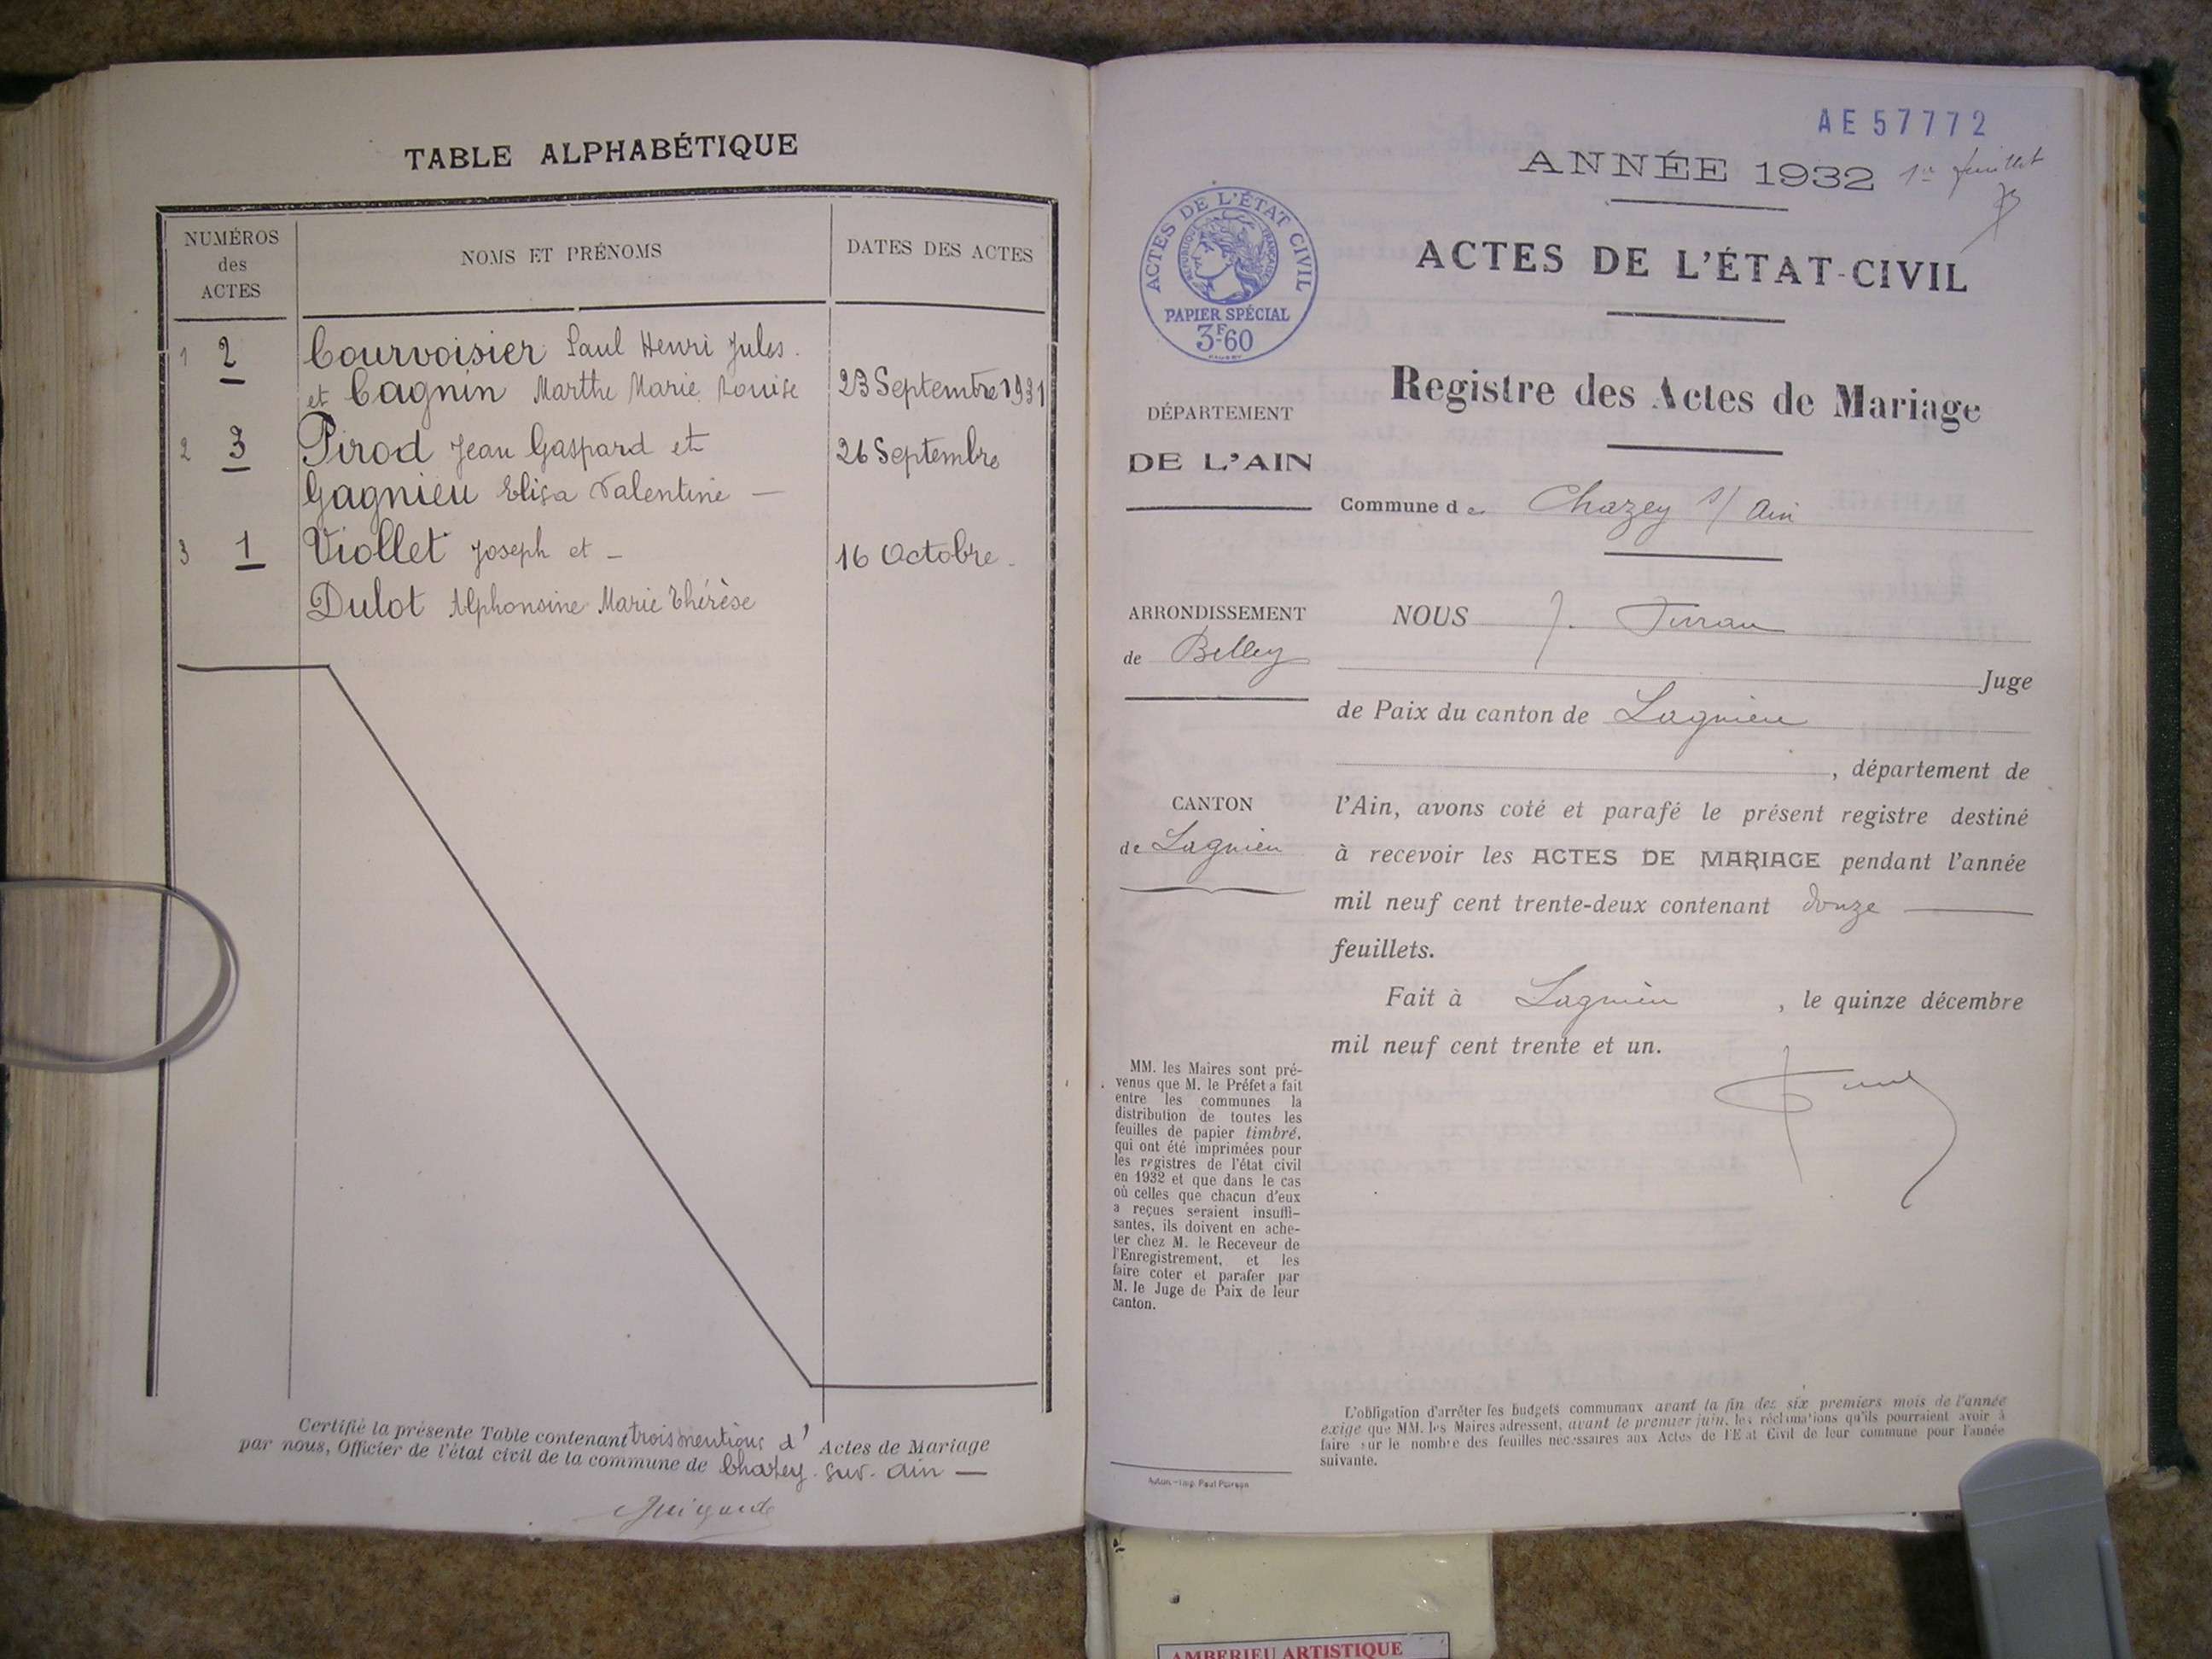 TABLE ALPHABÉTIQUE
NUMÉROS
des
ACTES
NOMS ET PRÉNOMS
DATES DES ACTES
1 2 Courvoisier Paul Henri Jules.
et Cagnin Marthe Marie Louise 23 Septembre 1931
2 3 Pirod Jean Gaspard et 26 Septembre
Gagnieu Elisa Valentine —
3 1 Viollet Joseph et – 16 Octobre.
Dulot Alphonsine Marie Thérèse
Certifié la présente Table contenant trois mentions d' Actes de Mariage
par nous, Officier de l'état civil de la commune de Chazey-sur-Ain —
AE 57772
ANNÉE 1932 1er feuillet
ACTES DE L'ÉTAT CIVIL
RÉPUBLIQUE FRANÇAISE
PAPIER SPÉCIAL
3F60
ACTES DE L'ÉTAT-CIVIL
Registre des Actes de Mariage
DÉPARTEMENT
DE L'AIN
Commune de Chazey s/ Ain
ARRONDISSEMENT
de Belley
NOUS J.
Juge
de Paix du canton de Lagnieu
, département de
CANTON
de Lagnieu
l'Ain, avons coté et parafé le présent registre destiné
à recevoir les ACTES DE MARIAGE pendant l'année
mil neuf cent trente-deux contenant douze
feuillets.
Fait à Lagnieu , le quinze décembre
mil neuf cent trente et un.
MM. les Maires sont pré-
venus que M. le Préfet a fait
entre les communes la
distribution de toutes les
feuilles de papier timbré,
qui ont été imprimées pour
les registres de l'état civil
en 1932 et que dans le cas
où celles que chacun d'eux
a reçues seraient insuffi-
santes, ils doivent en ache-
ter chez M. le Receveur de
l'Enregistrement, et les
faire coter et parafer par
M. le Juge de Paix de leur
canton.
L'obligation d'arrêter les budgets communaux avant la fin des six premiers mois de l'année
exige que MM. les Maires adressent, avant le premier juin, les réclamations qu'ils pourraient avoir à
faire sur le nombre des feuilles nécessaires aux Actes de l'Etat Civil de leur commune pour l'année
suivante.
Autun. - Imp. Paul
AMBERIEU ARTISTIQUE